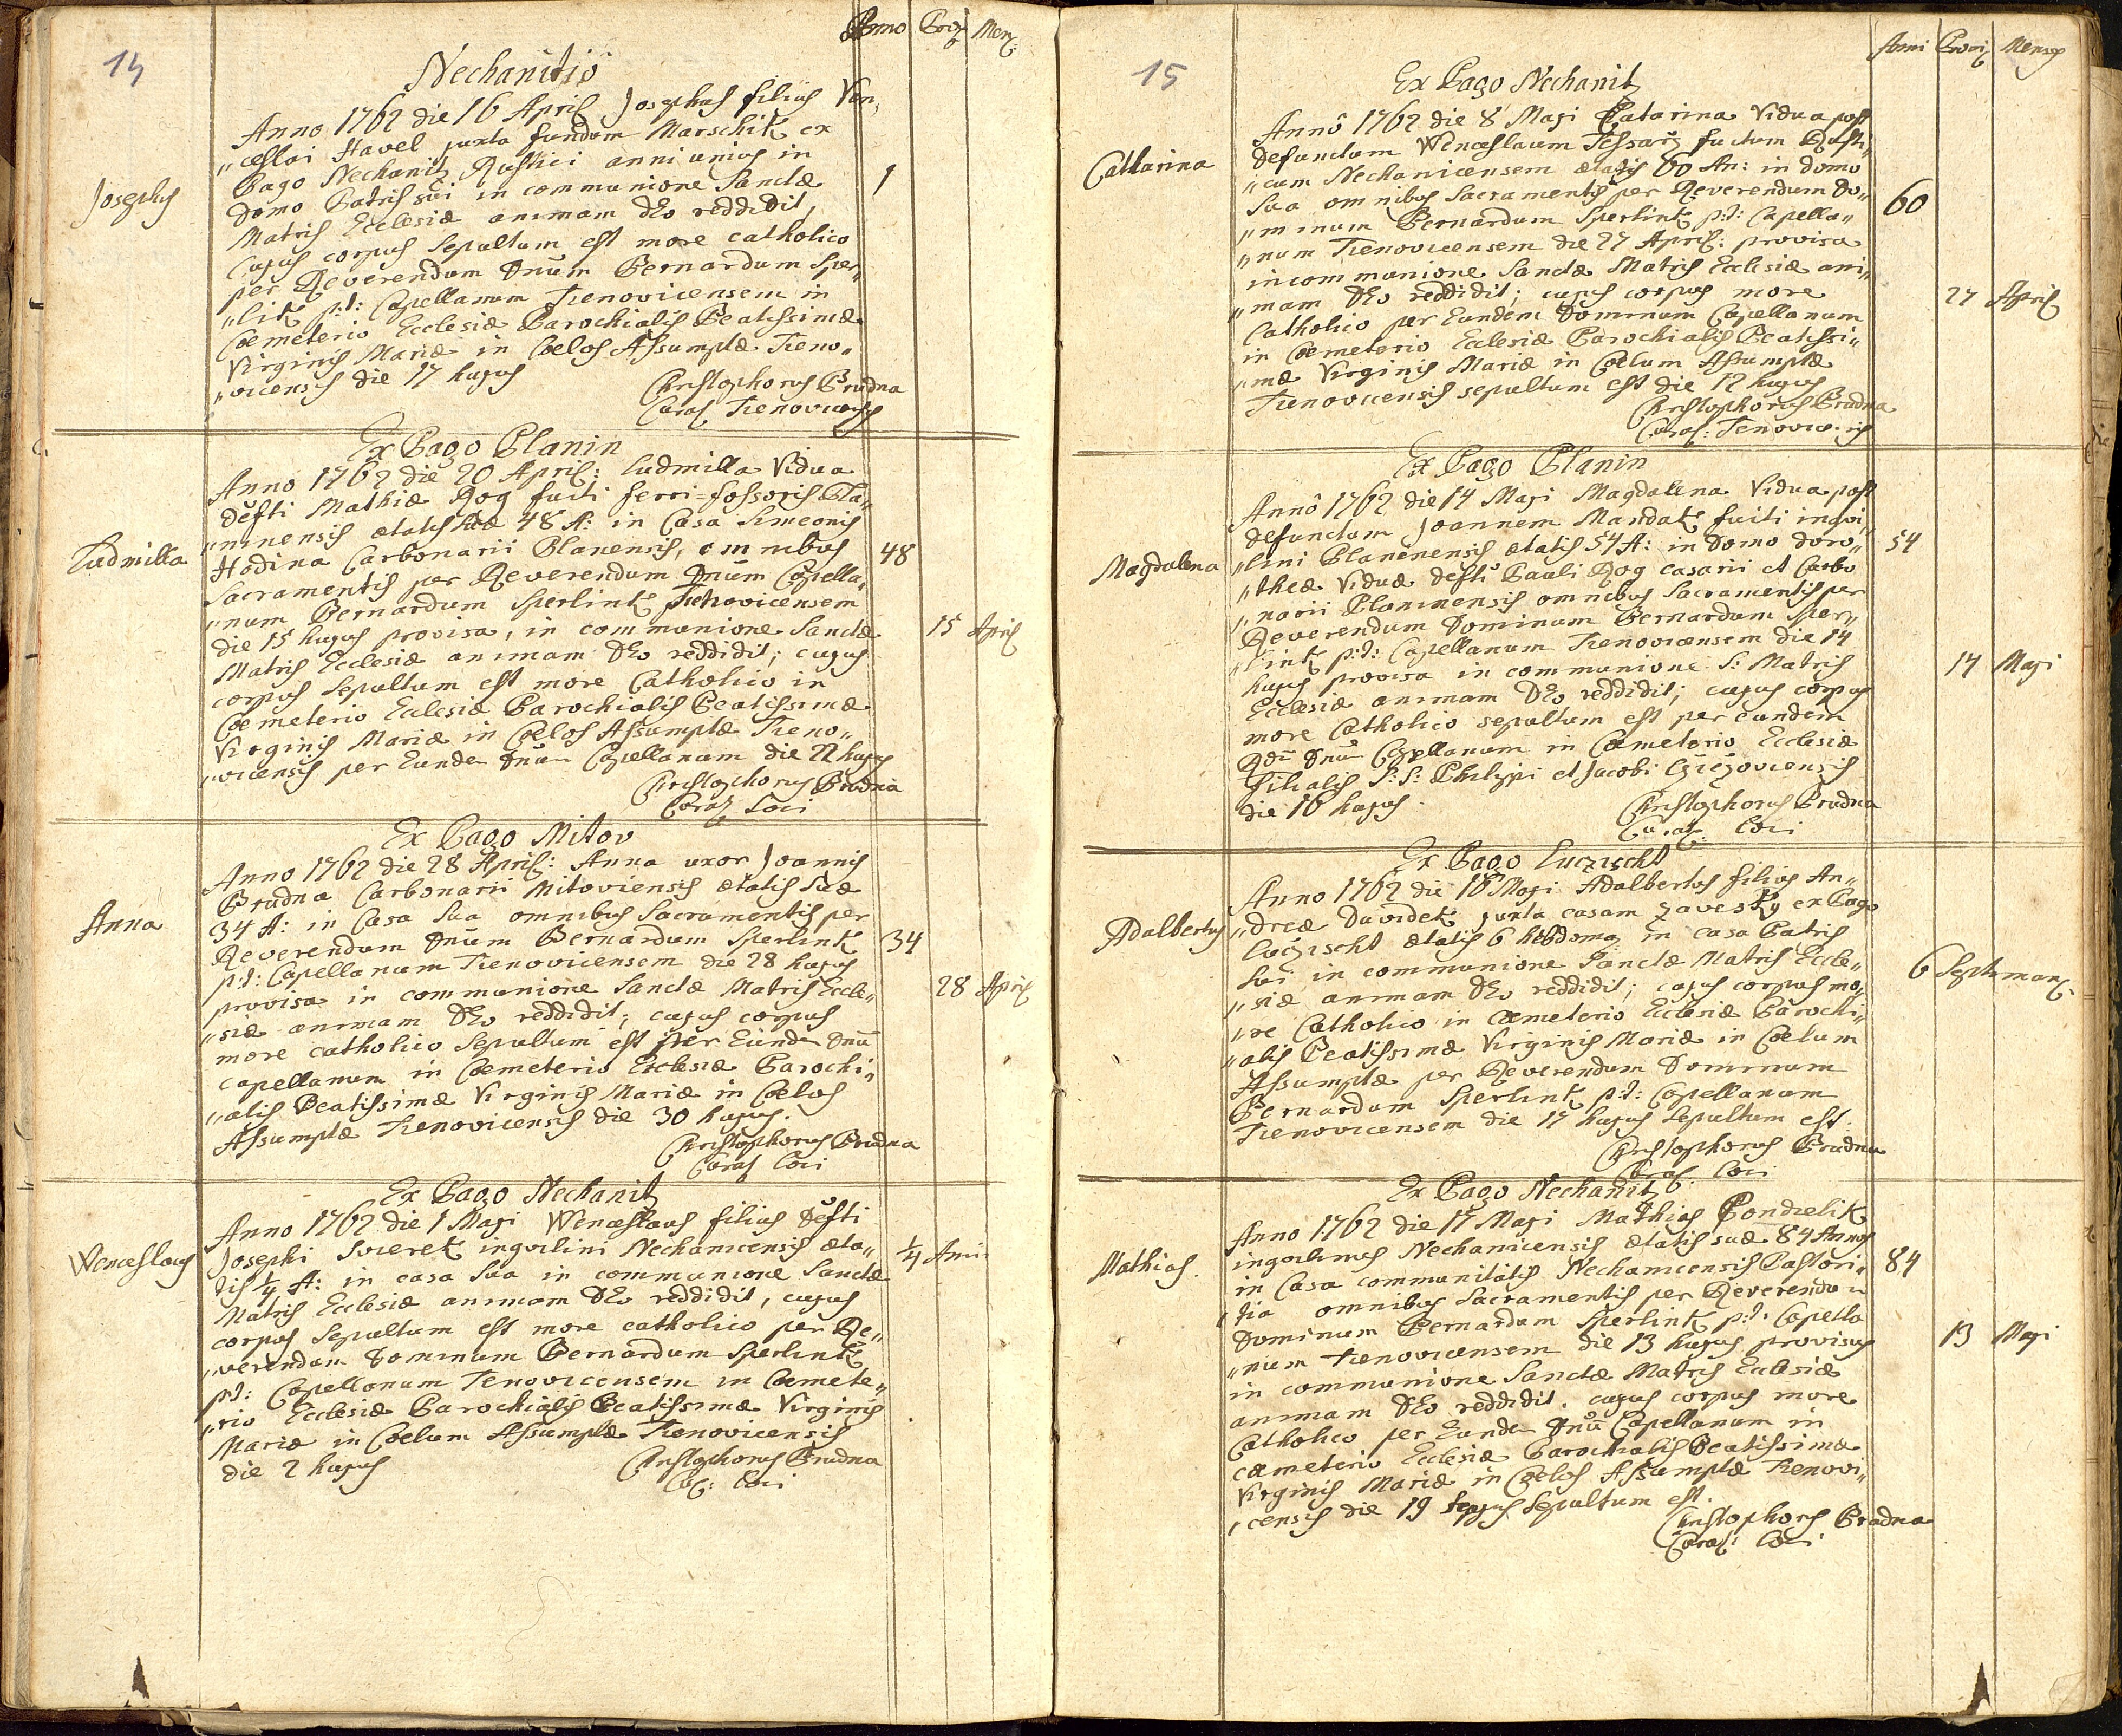 14
Anno Provi Mens
Nechanitio
Anno 1762 die 16 April Josephus filius Ven„
„ceslai Havel juxta fundum Marschik ex
Pago Nechanitz Rustici anni unius in
Josephus
1
domo Patris sui in communione Sanctæ
Matris Ecclesiæ animam DEo reddidit,
Cujus corpus sepultum est more catholico
per Reverendum Dnum Bernardum Sper„
„link p:t: Capellanum Trenovicensem in
Coemeterio Ecclesiæ Parochialis Beatissimæ
Virginis Mariæ in Coelos Assumptæ Treno„
„vicensis die 17 hujus
Christophorus Brudna
Curat Trenovicensis
Ex Pago Planin
Anno 1762 die 20 April: Ludmilla Vidua
defti Mathiæ Rog fuiti ferri=fossoris Pla„
„ninensis ætatis suæ 48 A: in Casa Simeonis
Ludmilla
Hodina Carbonarii Planensis, omnibus
48
Sacramentis per Reverendum Dnum Capella„
„num Bernardum Sperlink Trenovicensem
die 15 hujus provisa, in communione Sanctæ
15 April
Matris Ecclesiæ animam DEo reddidit; cujus
corpus sepultum est more Catholico in
Coemeterio Ecclesiæ Parochialis Beatissimæ
Virginis Mariæ in Coelos Assumptæ Treno„
„vicensis per Eunde Dnum Capellanum die 22 hujus
Christophorus Brudna
Curat Loci
Ex Pago Mitov
Anno 1762 die 28 April: Anna uxor Joannis
Brudna Carbonarii Mitoviensis ætatis suæ
Anna
34 A: in Casa sua omnibus Sacramentis per
Reverendum Dnum Bernardum Sperlink
34
p:t: Capellanum Trenovicensem die 28 hujus
provisa in communione Sanctæ Matris Eccle„
28 April
„siæ animam DEo reddidit; cujus corpus
more catholico sepultum est per Eunde Dnū
capellanum in Coemeterio Ecclesiæ Parochi„
„alis Beatissimæ Virginis Mariæ in Coelos
Assumptæ Trenovicensis die 30 hujus.
Christophorus Brudna
Curat Loci
Ex Pago Nechanitz
Anno 1762 die 1 Maji Wenceslaus filius defti
Wenceslaus
Josephi Svieret inquilini Nechanicensis æta„
1/4 Anni
tis 1/4 A: in casa sua in communione Sanctæ
Matris Ecclesiæ animam DEo reddidit, cujus
corpus sepultum est more catholico per Re„
„verendum Dominum Bernardum Sperlink
p:t: Capellanum Tenovicensem in Coemete„
„rio Ecclesiæ Parochialis Beatissimæ Virginis
Mariæ in Coelum Assumptæ Trenovicensis
die 2 hujus
Christophorus Brudna
Cur: Loci
15
Anni Provi Mensis
Ex Pago Nechanitz
Annô 1762 die 8 Maji Catarina Vidua post
defunctum Wenceslaum Tessarz fuitum Rusti„
Catharina
„cum Nechanicensem ætatis 60 An: in domo
sua omnibus Sacramentis per Reverendum Do„
60
„minum Bernardum Sperlink p:t: Capella„
„num Trenovicensem die 27 April: provisa
in communione Sanctæ Matris Ecclesiæ ani„
„mam DEo reddidit; cujus corpus more
27 April
Catholico per Eundem Dominum Capellanum
in Coemeterio Ecclesiæ Parochialis Beatissi„
„mæ Virginis Mariæ in Coelum Assumptæ
Trenovicensis sepultum est die 12 hujus
Christophorus Brudna
Curat: Tenovicensis
Ex Pago Planin
Annô 1762 die 14 Maji Magdalena Vidua post
defunctum Joannem Mandak fuiti inqui„
Magdalena
„lini Planenensis ætatis 54 A: in Domo Doro„
54
„theæ Viduæ defti Pauli Rog casarii et Carbo
„narii Planinensis omnibus Sacramentis per
Reverendum Dominum Bernardum Sper„
„link p:t: Capellanum Trenovicensem die 14
hujus provisa in communione S: Matris
14 Maji
Ecclesiæ animam DEo reddidit; cujus corpus
more Catholico sepultum est per eundem
Rdū Dnū Capellanum in Cæmeterio Ecclesiæ
filialis S:S: Philippi et Jacobi
die 16 hujus.
Christophorus Brudna
Curat: Loci
Ex Pago Luczischt
Anno 1762 die 16 Maji Adalbertus filius An„
Adalbertus
„dreæ Davidek juxta casam Zavesky ex Pago
Luczischt ætatis 6 hebdoma in casa Patris
sui in communione Sanctæ Matris Eccle„
6 Septiman:
„siæ animam DEo reddidit; cujus corpus mo„
„re Catholico in Cæmeterio Ecclesiæ Parochi„
„alis Beatissimæ Virginis Mariæ in Coelum
Assumptæ per Reverendum Dominum
Bernardum Sperlink p:t: Capellanum
Trenovicensem die 17 hujus sepultum est.
Christophorus Brudna
Curat: Loci
Ex Pago Nechanitz
Anno 1762 die 17 Maji Mathias Pondielik
Mathias.
inquilinus Nechanicensis ætatis suæ 84 Annos
84
in Casa communitatis Nechanicensis Pastori„
„tia omnibus Sacramentis per Reverendum
Dominum Bernardum Sperlink p:t: Capella
„num Trenovicensem die 13 hujus provisus
13 Maji
in communione Sanctæ Matris Ecclesiæ
animam DEo reddidit. cujus corpus more
Catholico per Eunde Dnū Capellanum in
cæmeterio Ecclesiæ Parochialis Beatissimæ
Virginis Mariæ in Coelos Assumptæ Trenovi„
„censis die 19 hujus sepultum est.
Christophorus Brudna
Curat: Loci